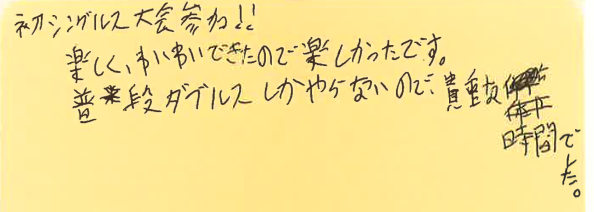 初シングルス大会参加!!
楽しく、わいわいできたので楽しかったです。
普段ダブルスしかやらないので、貴重な
時間で
した。